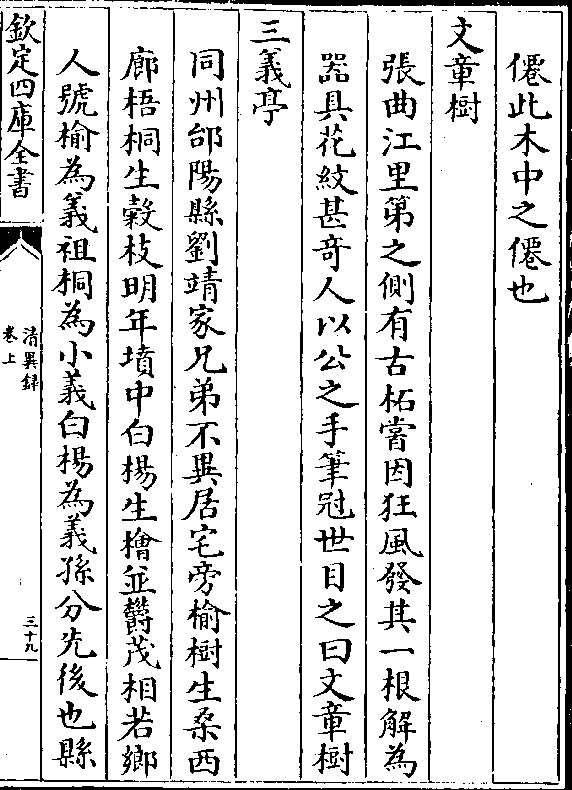 僊此木中之僊也
文章樹
張曲江里第之側有古柘嘗因狂風發其一根解為
器具花紋甚奇人以公之手筆冠世目之曰文章樹
三義亭
同州郃陽縣劉靖家兄弟不異居宅旁榆樹生桑西
廊梧桐生穀枝明年墳中白楊生檜並欝茂相若鄉
人號榆為義祖桐為小義白楊為義孫分先後也縣
欽定四庫全書
清異録
卷上
三十九